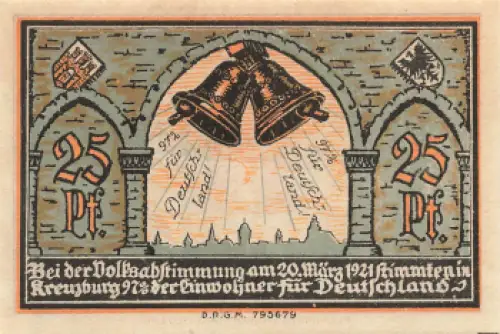 97% für Deutschland!
97% für Deutschland!
25
Pf.
25
Pf.
Bei der Volksabstimmung am 20. März 1921 stimmten in
Kreuzburg 97% der Einwohner für Deutschland
D.R.G.M. 795679